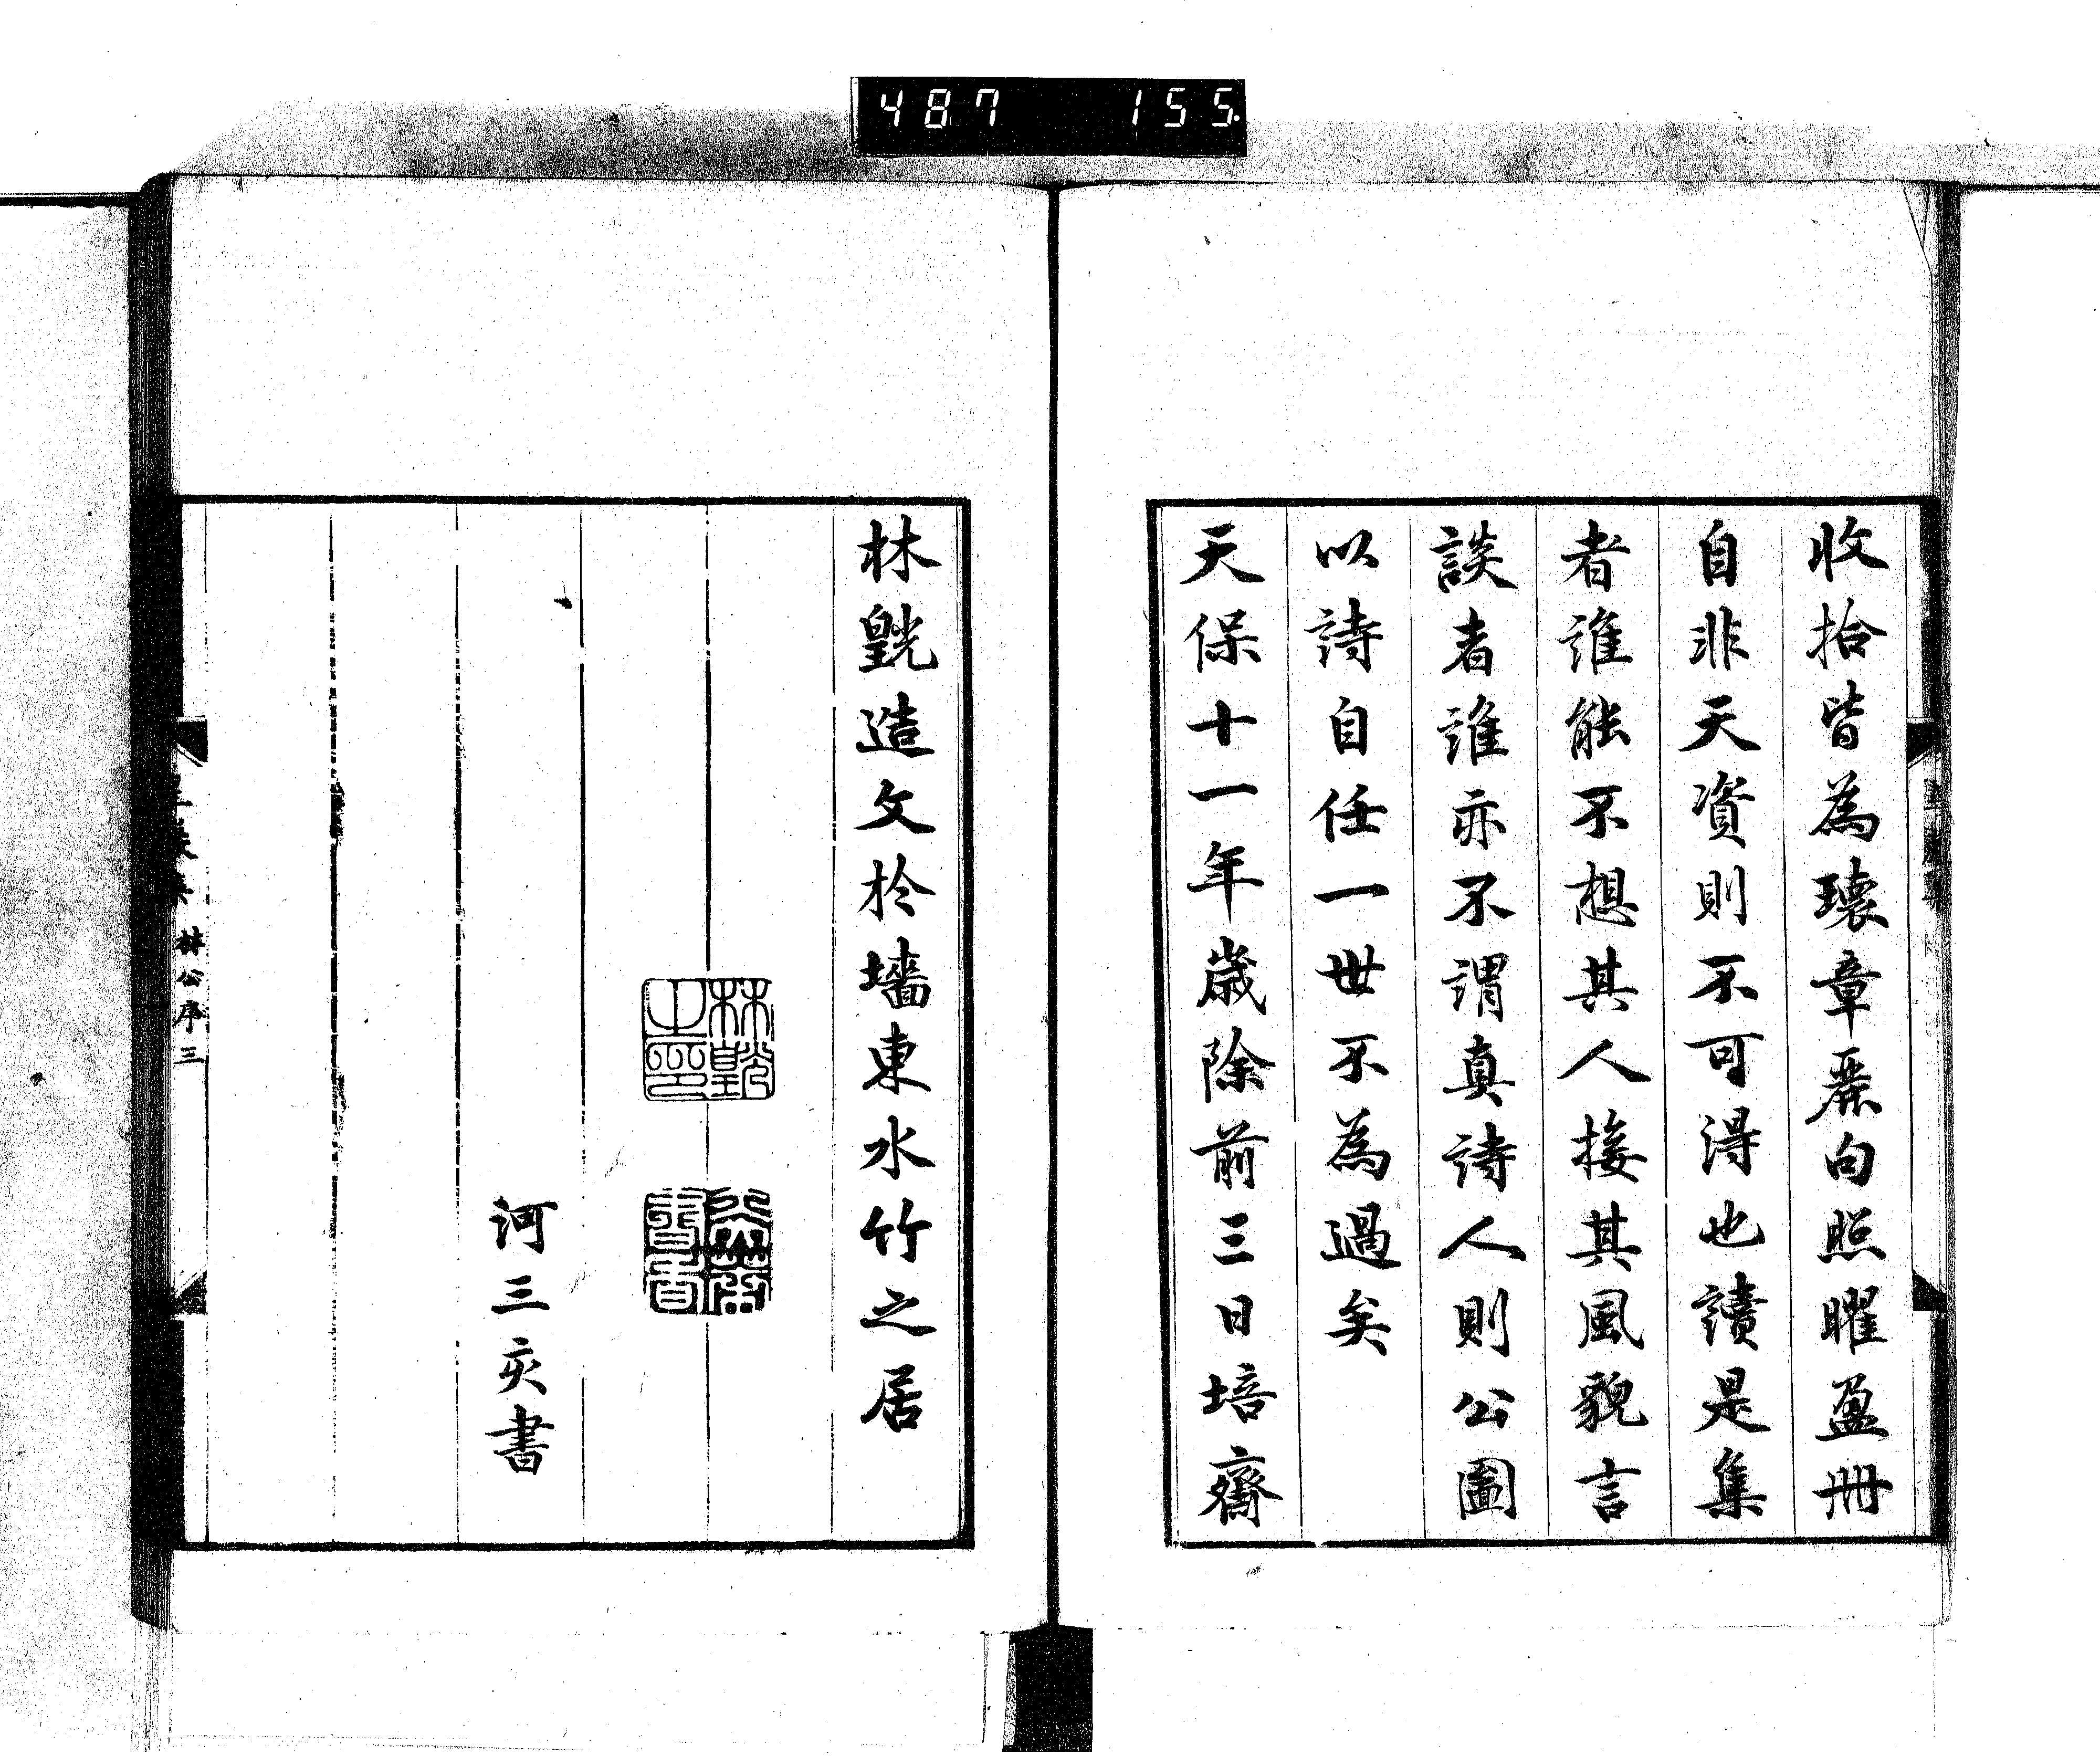 487 155
收拾皆為瓌章麗句照曜盈冊
自非天資則不可得也讀是集
者誰能不想其人接其風貌言
談者誰亦不謂真詩人則公圖
以詩自任一世不為過矣
天保十一年歳除前三日培齋
林皝造文於墻東水竹之居
林皝之印
河三亥書
林公序 三